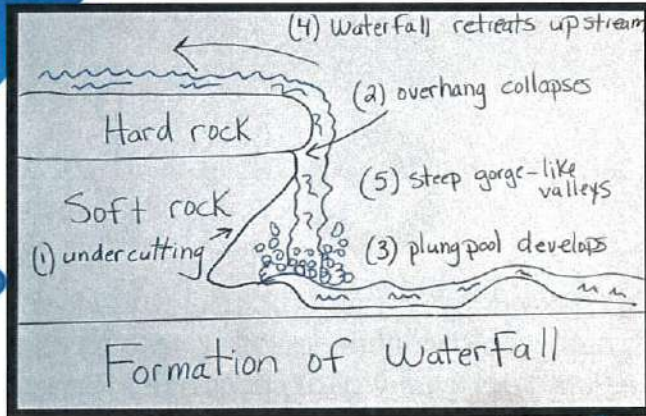 (4) Waterfall retreats upstream
(2) overhang collapses
Hard rock
(5) steep gorge-like
valleys
Soft rock
(1) undercutting
(3) plungpool develops
Formation of Waterfall